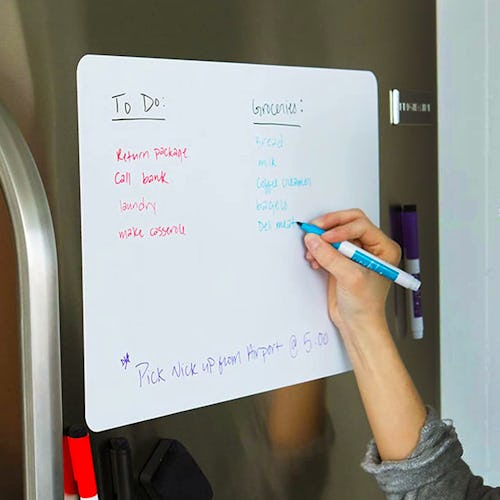 To Do:
Return package
Call bank
laundry
make casserole
Groceries:
Bread
milk
Coffee creamer
bagels
Deli meat
*Pick Nick up from Airport @ 5:00